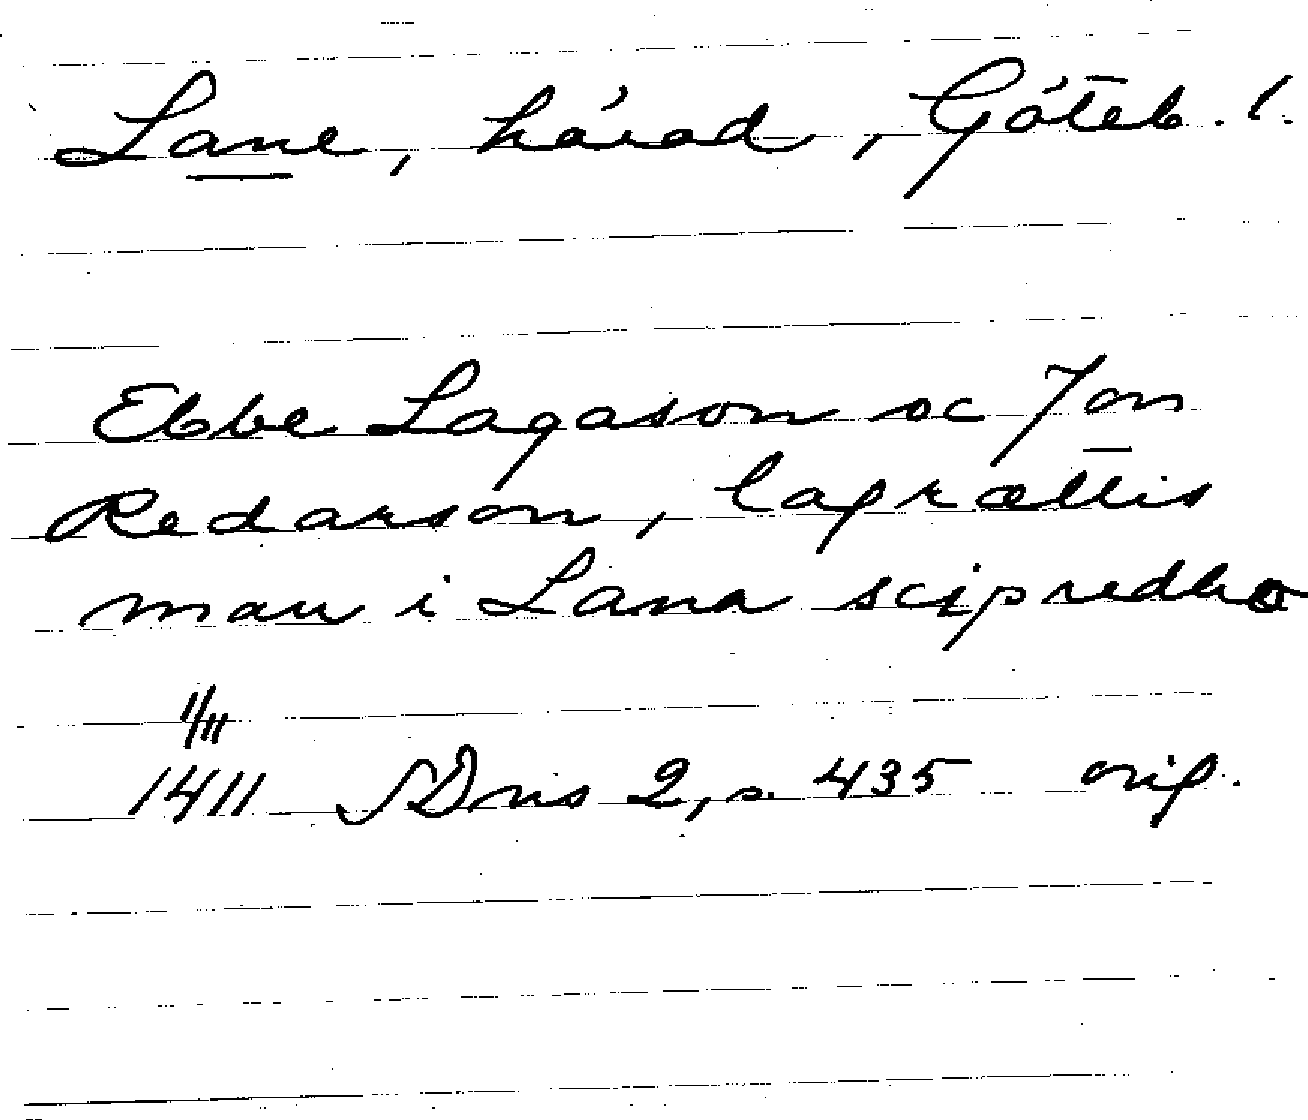 Lane, härad, Göteb. l.
Ebbe Lagason oc Jon
Redarson, lagrættis
man i Lana scipredho
1/11
1411 SDns 2, s. 435 orig.